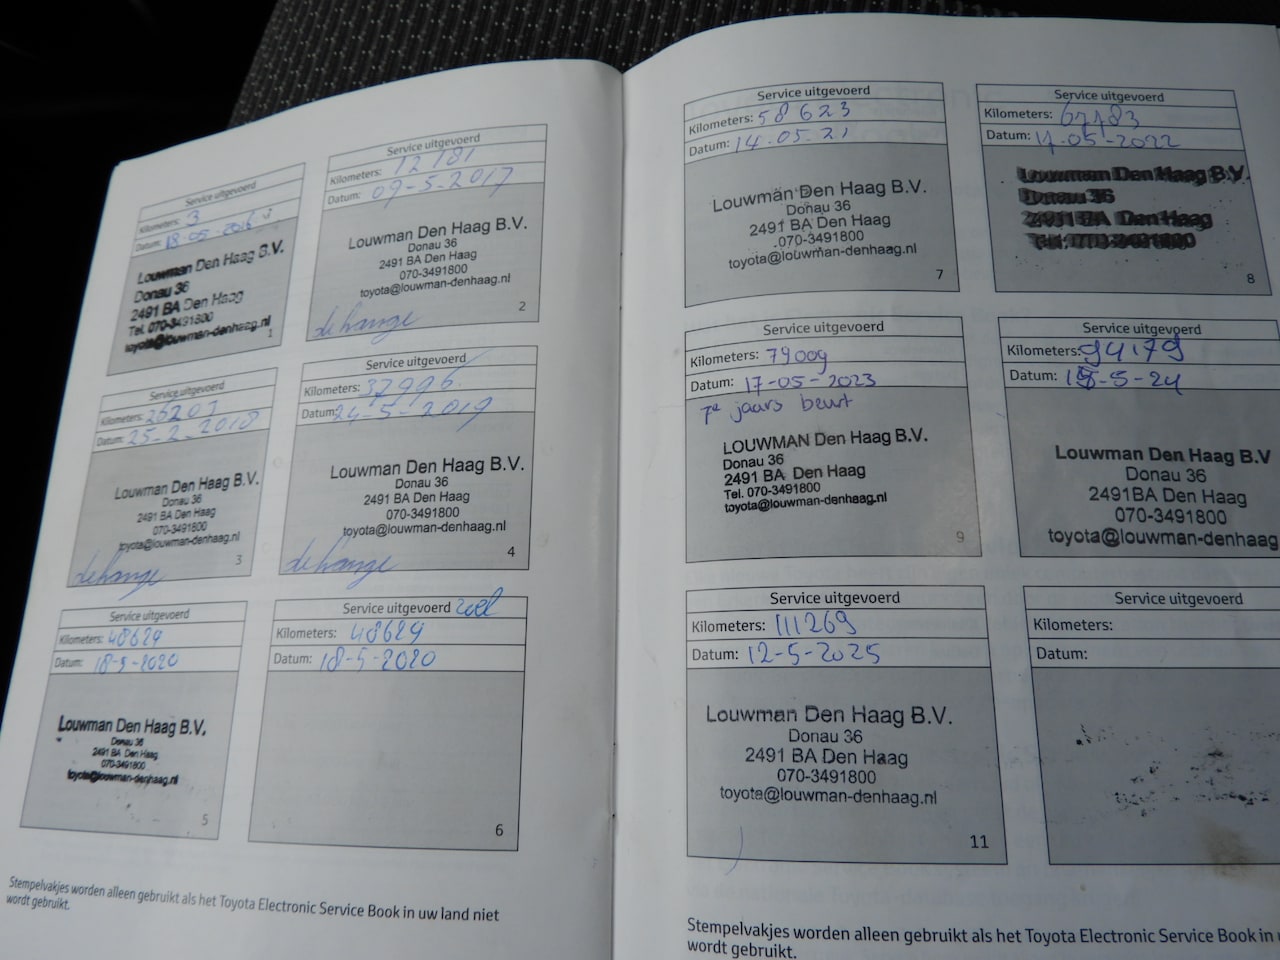 Service uitgevoerd
Kilometers: 3
Datum: 18-05-2016
Louwman Den Haag B.V.
Donau 36
2491 BA Den Haag
Tel. 070-3491800
toyota@louwman-denhaag.nl
1
Service uitgevoerd
Kilometers: 12181
Datum: 09-5-2017
Louwman Den Haag B.V.
Donau 36
2491 BA Den Haag
070-3491800
toyota@louwman-denhaag.nl
2
Service uitgevoerd
Kilometers: 26207
Datum: 25-2-2018
Louwman Den Haag B.V.
Donau 36
2491 BA Den Haag
070-3491800
toyota@louwman-denhaag.nl
3
Service uitgevoerd
Kilometers: 37996
Datum: 24-5-2019
Louwman Den Haag B.V.
Donau 36
2491 BA Den Haag
070-3491800
toyota@louwman-denhaag.nl
4
Service uitgevoerd
Kilometers: 48629
Datum: 18-5-2020
Louwman Den Haag B.V.
Donau 36
2491 BA Den Haag
070-3491800
toyota@louwman-denhaag.nl
5
Service uitgevoerd
Kilometers: 48629
Datum: 18-5-2020
6
Stempelvakjes worden alleen gebruikt als het Toyota Electronic Service Book in uw land niet
wordt gebruikt.
Service uitgevoerd
Kilometers: 58623
Datum: 14.05.21
Louwman Den Haag B.V.
Donau 36
2491 BA Den Haag
070-3491800
toyota@louwman-denhaag.nl
7
Service uitgevoerd
Kilometers: 67183
Datum: 17-05-2022
Louwman Den Haag B.V.
Donau 36
2491 BA Den Haag
Tel. 070-3491800
8
Service uitgevoerd
Kilometers: 79009
Datum: 17-05-2023
7e jaars beurt
LOUWMAN Den Haag B.V.
Donau 36
2491 BA Den Haag
Tel. 070-3491800
toyota@louwman-denhaag.nl
9
Service uitgevoerd
Kilometers: 94179
Datum: 15-5-24
Louwman Den Haag B.V
Donau 36
2491 BA Den Haag
070-3491800
toyota@louwman-denhaag
Service uitgevoerd
Kilometers: 111269
Datum: 12-5-2025
Louwman Den Haag B.V.
Donau 36
2491 BA Den Haag
070-3491800
toyota@louwman-denhaag.nl
11
Service uitgevoerd
Kilometers:
Datum:
Stempelvakjes worden alleen gebruikt als het Toyota Electronic Service Book in
wordt gebruikt.